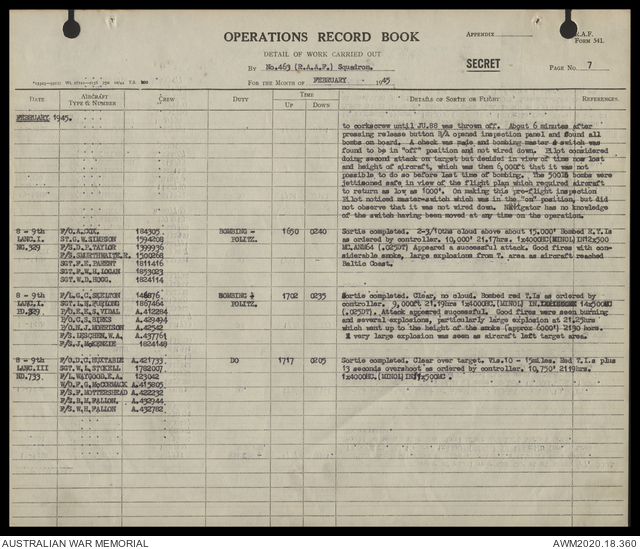 OPERATIONS RECORD BOOK
APPENDIX
R.A.F. FORM 541.
DETAIL OF WORK CARRIED OUT
BY No.463 (R.A.A.F.) Squadron.
SECRET
PAGE No. 7
FOR THE MONTH OF FEBRUARY 1945
DATE AIRCRAFT TYPE & NUMBER CREW DUTY TIME UP DOWN DETAILS OF SORTIE OR FLIGHT REFERENCES.
FEBRUARY 1945.
to corkscrew until JU.88 was thrown off. About 6 minutes after
pressing release button B/A opened inspection panel and found all
bombs on board. A check was made and bombing master switch was
found to be in "off" position and not wired down. Pilot considered
doing second attack on target but decided in view of time now lost
and height of aircraft, which was then 6,000ft that it was not
possible to do so before last time of bombing. The 500lb bombs were
jettisoned safe in view of the flight plan which required aircraft
to return as low as 1000'. On making this pre-flight inspection
Pilot noticed master-switch which was in the "on" position, but did
not observe that it was not wired down. Navigator has no knowledge
of the switch having been moved at any time on the operation.
8 - 9th F/O.A.COX. 184305 BOMBING - 1650 0240 Sortie completed. 2-3/10ths cloud above about 15,000' Bombed R.T.Is
LANC.I. ST.G.W.SIMPSON 1594208 POLITZ. as ordered by controller. 10,000' 21.17hrs. 1x4000HC(MINOL)IN12x500
NG.329 F/S.D.P.TAYLOR 1399936 MC,ANM64 (.025DT) Appeared a successful attack. Good fires with con-
F/S.SMURTHWAITE.R. 1500268 siderable smoke, large explosions from T. area as aircraft reached
SGT.F.E.PARENT 1811416 Baltic Coast.
SGT.F.W.H.LOGAN 1853023
SGT.W.D.HOGG 1824114
8 - 9th F/L.G.C.SKELTON 146876 BOMBING 1702 0235 Sortie completed. Clear, no cloud. Bombed red T.Is as ordered by
LANC.I. SGT.L.S.FURLONG 1867464 POLITZ. controller. 9,000ft 21.19hrs 1x4000HC (MINOL) IN 14x500MC
ED.329 F/O.E.K.S.VIDAL A.412284 (.025DT). Attack appeared successful. Good fires were seen burning
F/O.G.S.HINES A.429494 and several explosions, particularly large explosion at 21.25hrs
F/O.N.J.MORRISON A.42542 which went up to the height of the smoke (approx 6000') 2130 hours.
F/S.LESCHEN.W.A. A.437761 A very large explosion was seen as aircraft left target area.
F/S.J.McKENZIE 1824149
8 - 9th F/O.D.C.HUXTABLE A.421733 DO 1717 0205 Sortie completed. Clear over target. Vis.10 - 15miles. Red T.I.s plus
LANC.III SGT.W.L.STOKELL 1782007 13 seconds overshoot as ordered by controller. 10,750' 2119hrs.
ND.733. F/L.WAYGOOD.K.A. 123042 1x4000HC.(MINOL)
W/O.F.G.McCORMACK A.415805
F/S.F.MOTTERSHEAD A.422232
F/S.R.M.FALLON. A.432944
F/S.W.H.FALLON A.432782
AUSTRALIAN WAR MEMORIAL
AWM2020.18.360